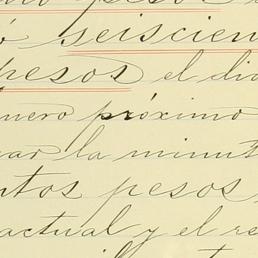 pesos
ó seiscien
pesos el dia
nero próximo
var la minut
ntos pesos
actual y el re